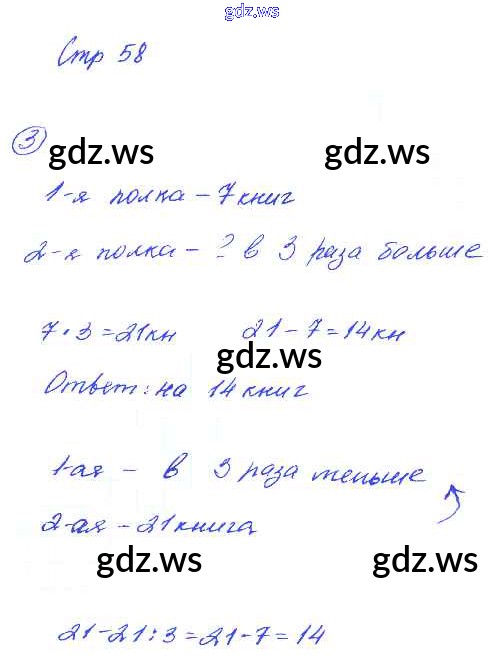 gdz.ws
Стр 58
3
gdz.ws gdz.ws
1-я полка – 7 книг
2-я полка – ? в 3 раза больше
7 · 3 = 21 кн 21 – 7 = 14 кн
gdz.ws
Ответ: на 14 книг
1-ая – в 3 раза меньше
2-ая – 21 книга
gdz.ws gdz.ws
21 – 21 : 3 = 21 – 7 = 14